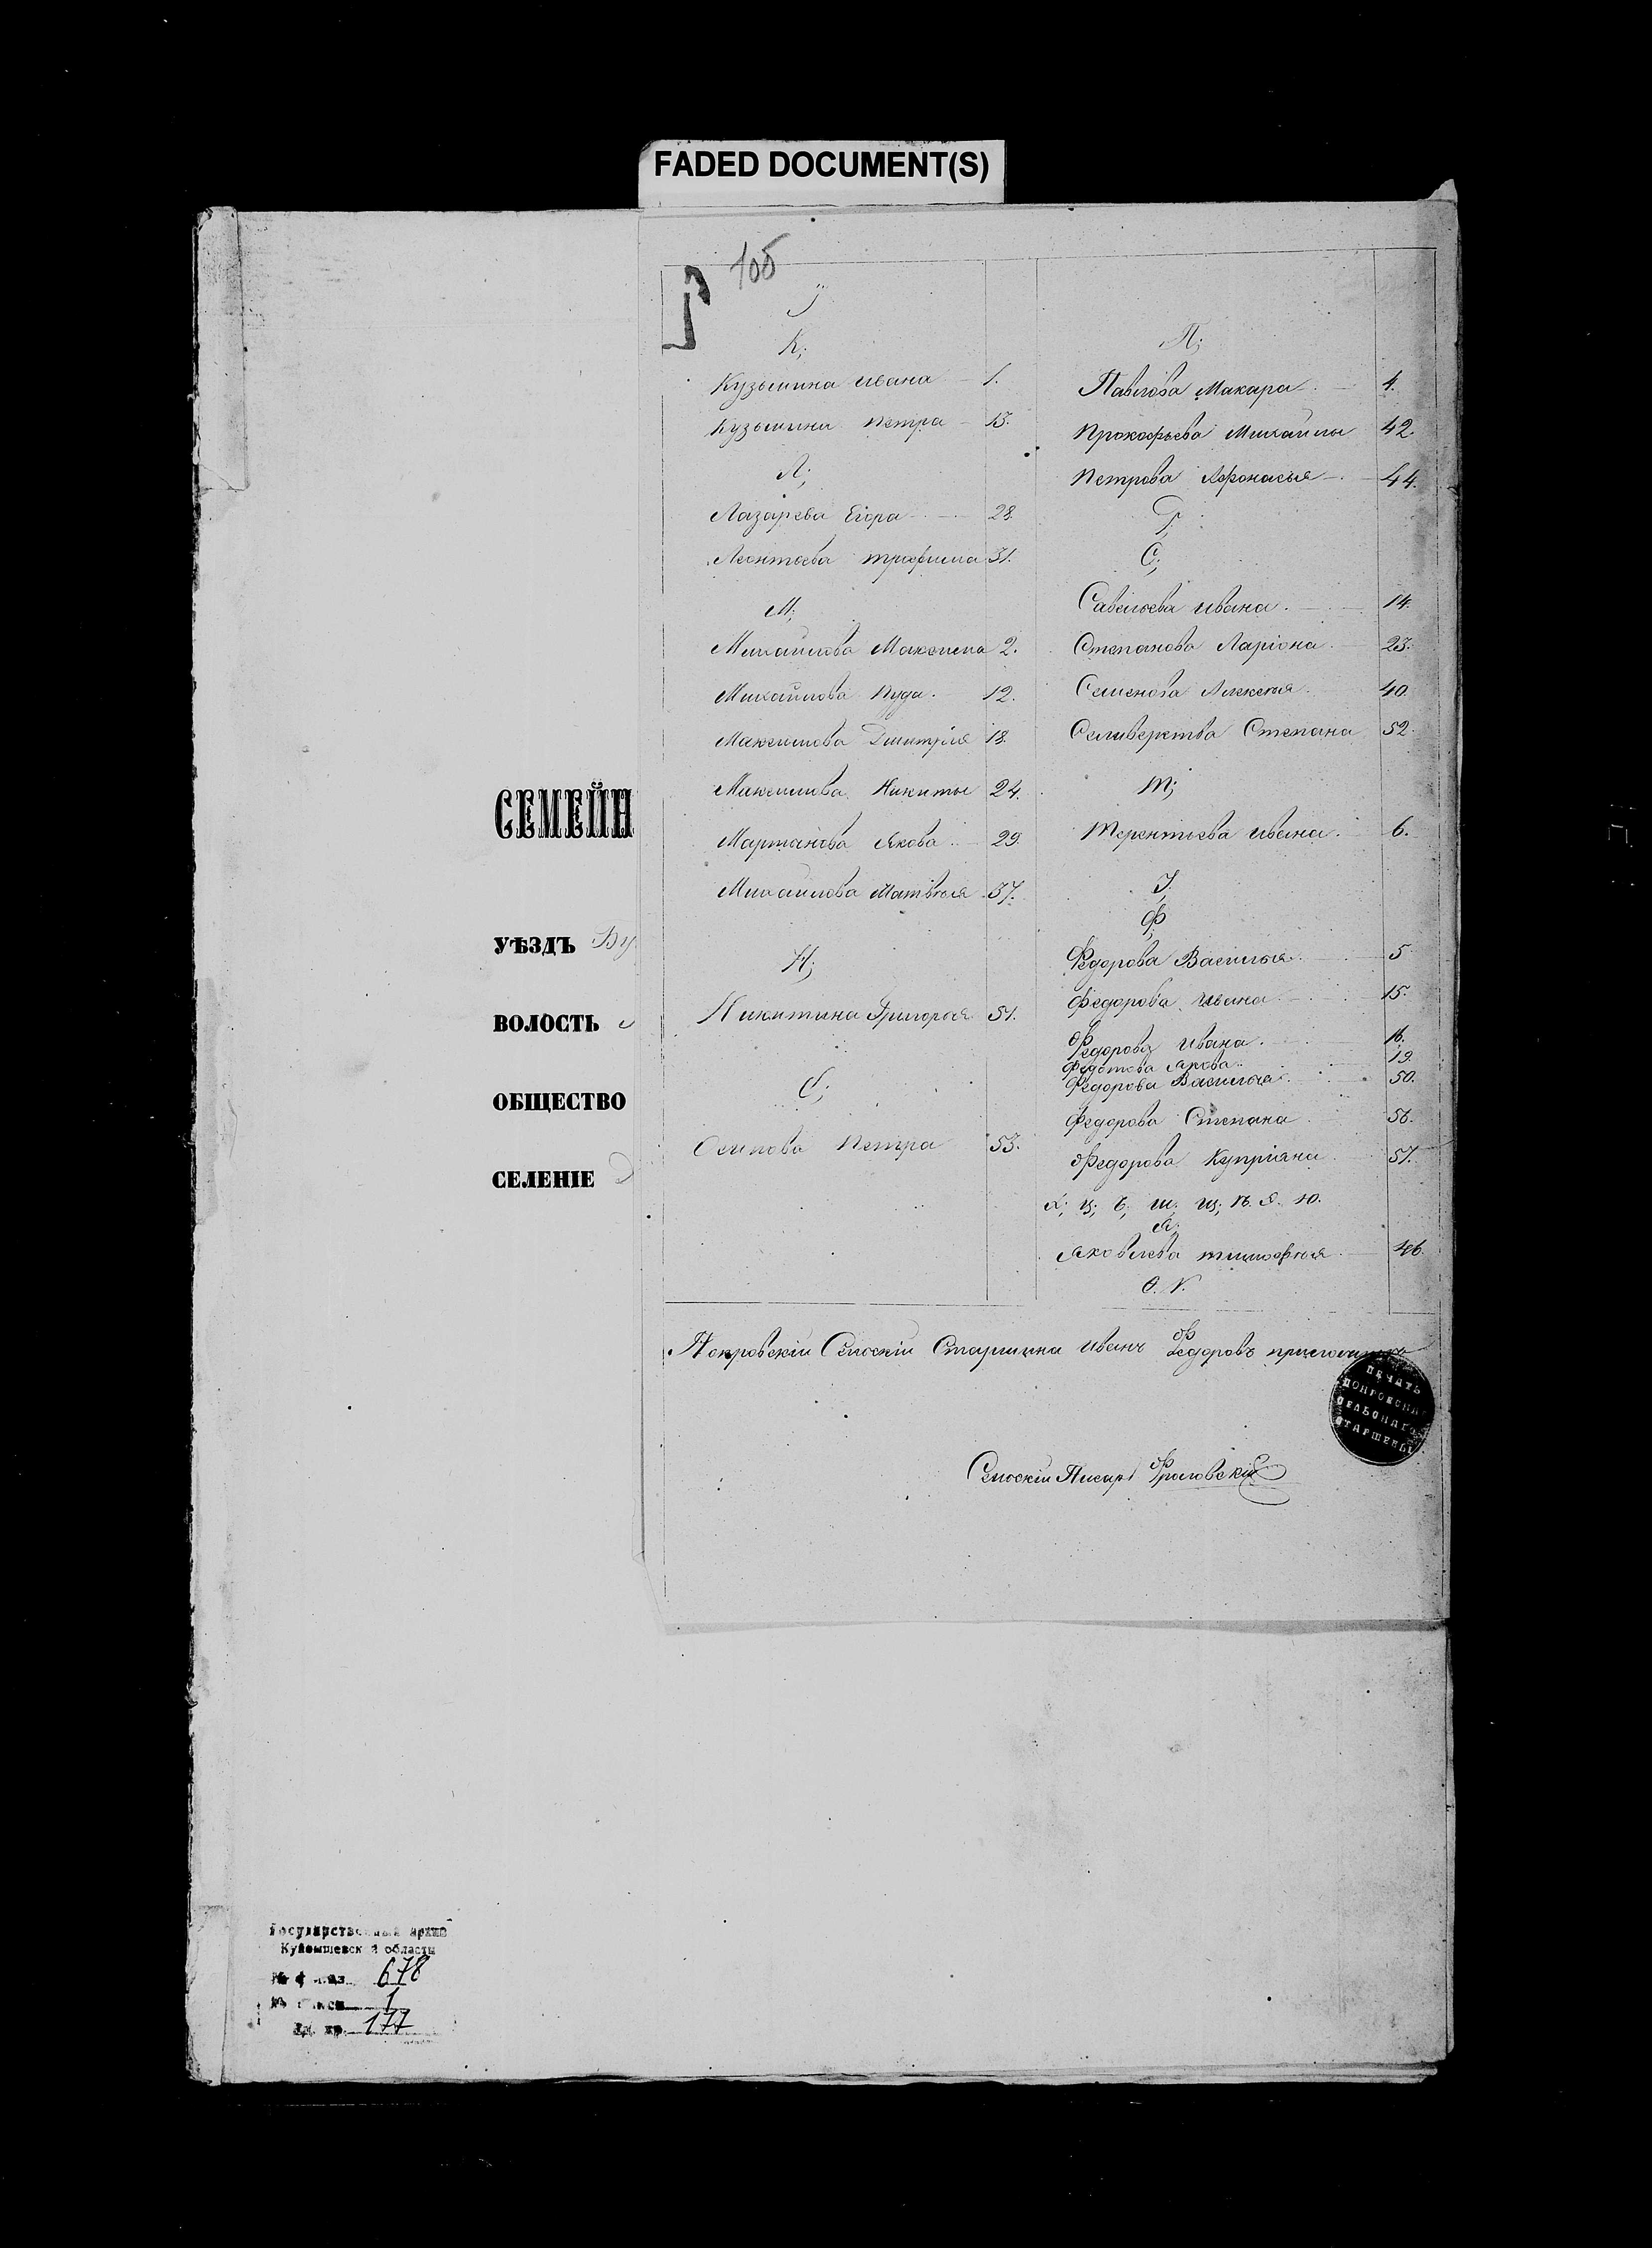 FADED DOCUMENT(S)
СЕМЕЙН
УѢЗДЪ Бу
ВОЛОСТЬ
ОБЩЕСТВО
СЕЛЕНІЕ
Государственный архив
Куйбышевской области
678
1
Ед. хр. 177
105
К;
Кузьмина Ивана 1.
Кузьмина Петра 13.
Л;
Лазарева Егора 28.
Леонтьева Трофима 31.
М;
Михайлова Максима 2.
Михайлова Пуда 12.
Максимова Дмитрія 18.
Максимова Никиты 24.
Мартынова Якова 29.
Михайлова Матвѣя 37.
Н;
Никитина Григорья 51.
О;
Осипова Петра 53.
П;
Павлова Макара 4.
Прокофьева Михайлы 42.
Петрова Афонасья 44.
Р;
С;
Савельева Ивана 14.
Степанова Ларіона 23.
Семенова Алексѣя 40.
Селиверства Степана 52.
Т;
Терентьева Ивана 6.
У;
Ф;
Федорова Василья 5
Федорова Ивана 15.
Федорова Ивана 16.
Федотова Якова 19.
Федорова Василья 50.
Федорова Степана 56.
Федорова Купріяна 57.
х; ц; ч; ш; щ; ѣ. э. ю.
Я;
Яковлева Тимофѣя 46.
Ѳ. Ѵ.
Покровскій Сельскій Старшина Иванъ Федоровъ приложилъ
ПЕЧАТЬ
ПОКРОВСКАГ
СЕЛЬСКАГО
СТАРШИНЫ
Сельскій Писарь Фроловскій